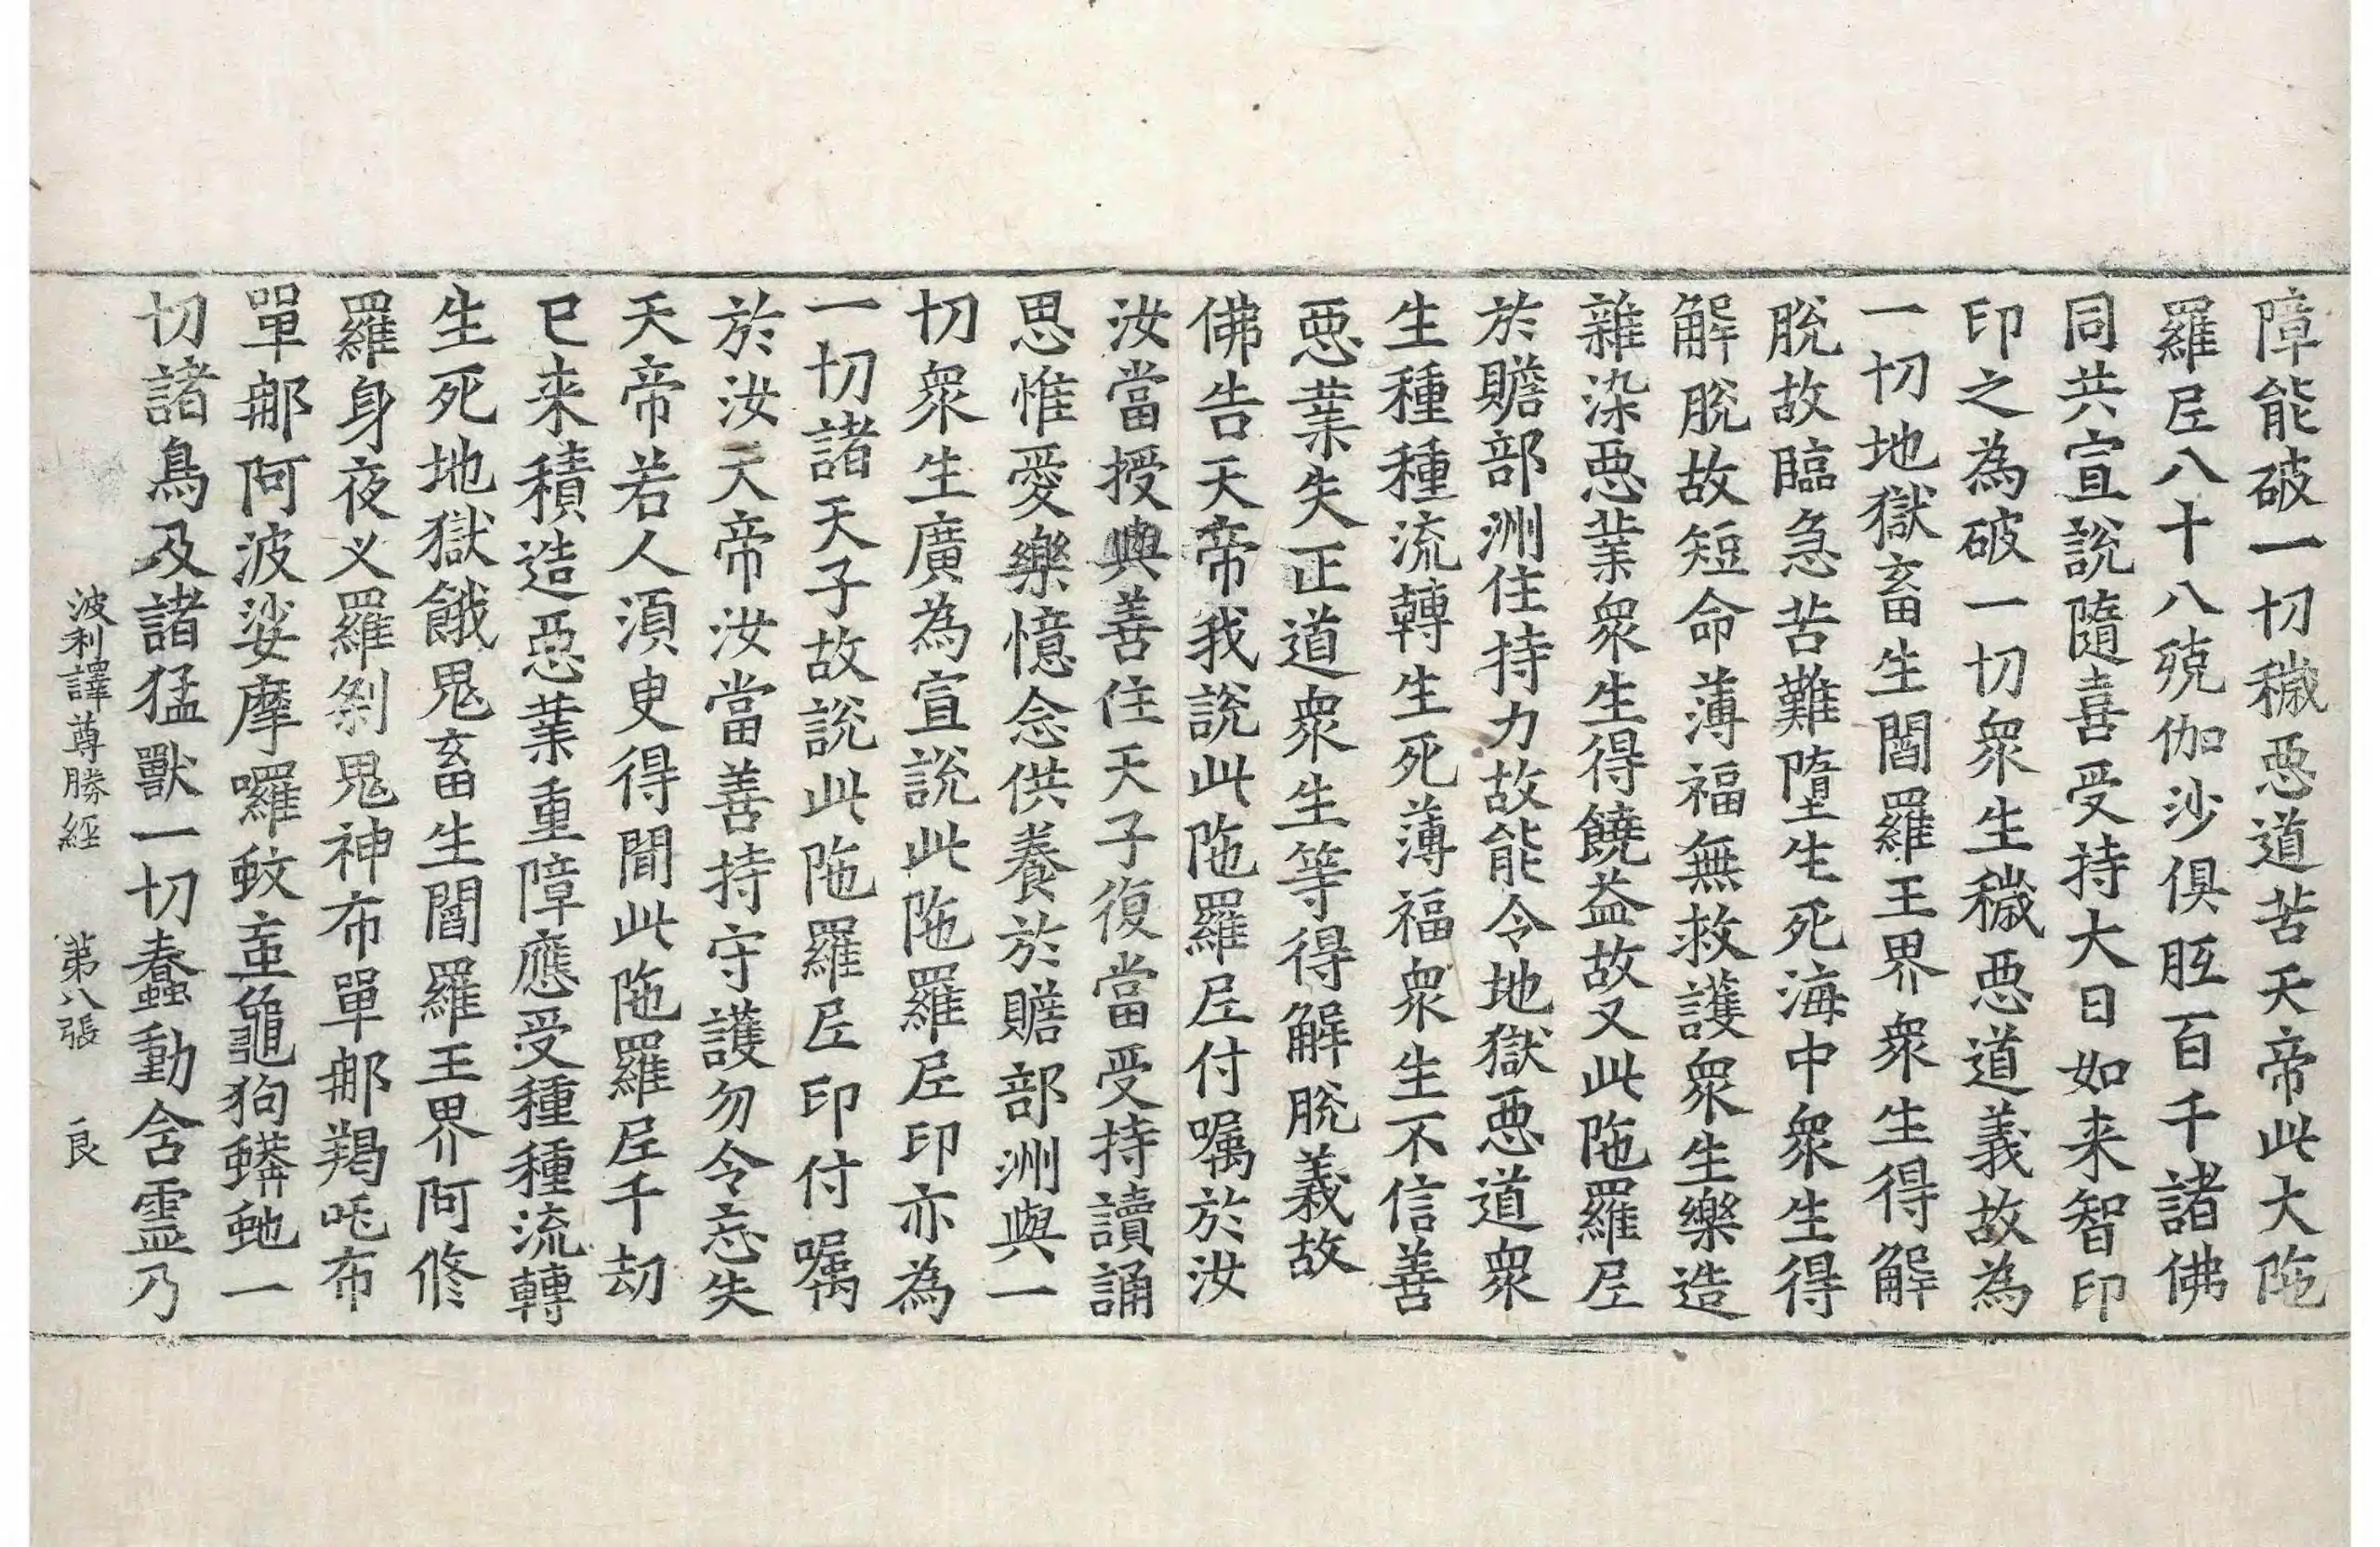 障能破一切穢惡道苦天帝此大陁
羅𡰱八十八殑伽沙俱胝百千諸佛
同共宣說隨喜受持大日如来智印
印之為破一切眾生穢惡道義故為
一切地獄畜生閻羅王界眾生得解
脫故臨急苦難墮生死海中眾生得
解脫故短命薄福無救護眾生樂造
雜染惡業眾生得饒益故又此陁羅𡰱
於贍部洲住持力故能令地獄惡道眾
生種種流轉生死薄福眾生不信善
惡業失正道眾生等得解脫義故
佛告天帝我說此陁羅𡰱付嘱於汝
汝當授與善住天子復當受持讀誦
思惟愛樂憶念供養於贍部洲與一
切眾生廣為宣說此陁羅𡰱印亦為
一切諸天子故說此陁羅𡰱印付嘱
於汝天帝汝當善持守護勿令忘失
天帝若人須臾得聞此陁羅𡰱千劫
已来積造惡業重障應受種種流轉
生死地獄餓鬼畜生閻羅王界阿修
羅身夜义羅剎鬼神布單那羯吒布
單那阿波娑摩囉蚊䖟龜狗蟒虵一
切諸鳥及諸猛獸一切蠢動含靈乃
波利譯尊勝經 苐八張 良